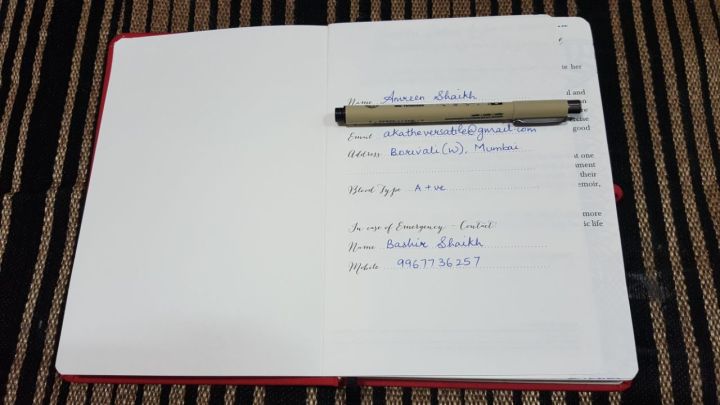 Name Amreen Shaikh
Email akatheversatile@gmail.com
Address Borivali (W), Mumbai
Blood Type A +ve
In case of Emergency - Contact
Name Bashir Shaikh
Mobile 9967736257
is her
and
good
one
their
more
life